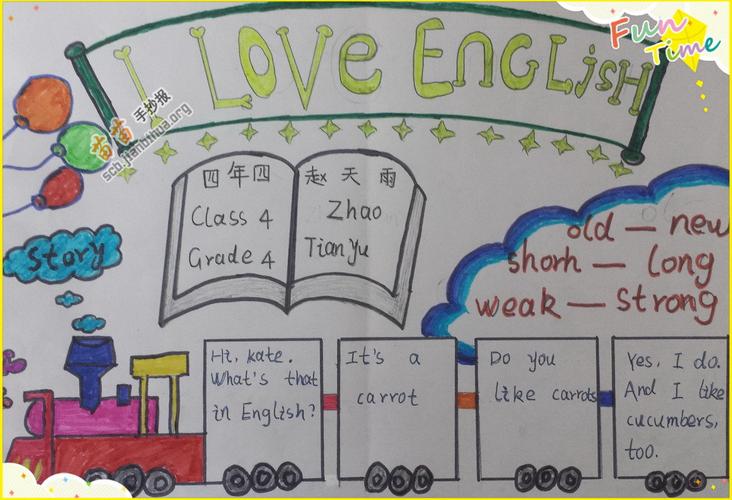 Fun
Time
I LOVE EnGLisH
苗苗手抄报
scb.jianbihua.org
四年四
Class 4
Grade 4
赵天雨
Zhao
TianYu
old — new
shorh — long
weak — strong
story
Hi, kate.
What's that
in English?
It's a
carrot
Do you
like carrots
Yes, I do.
And I like
cucumbers,
too.